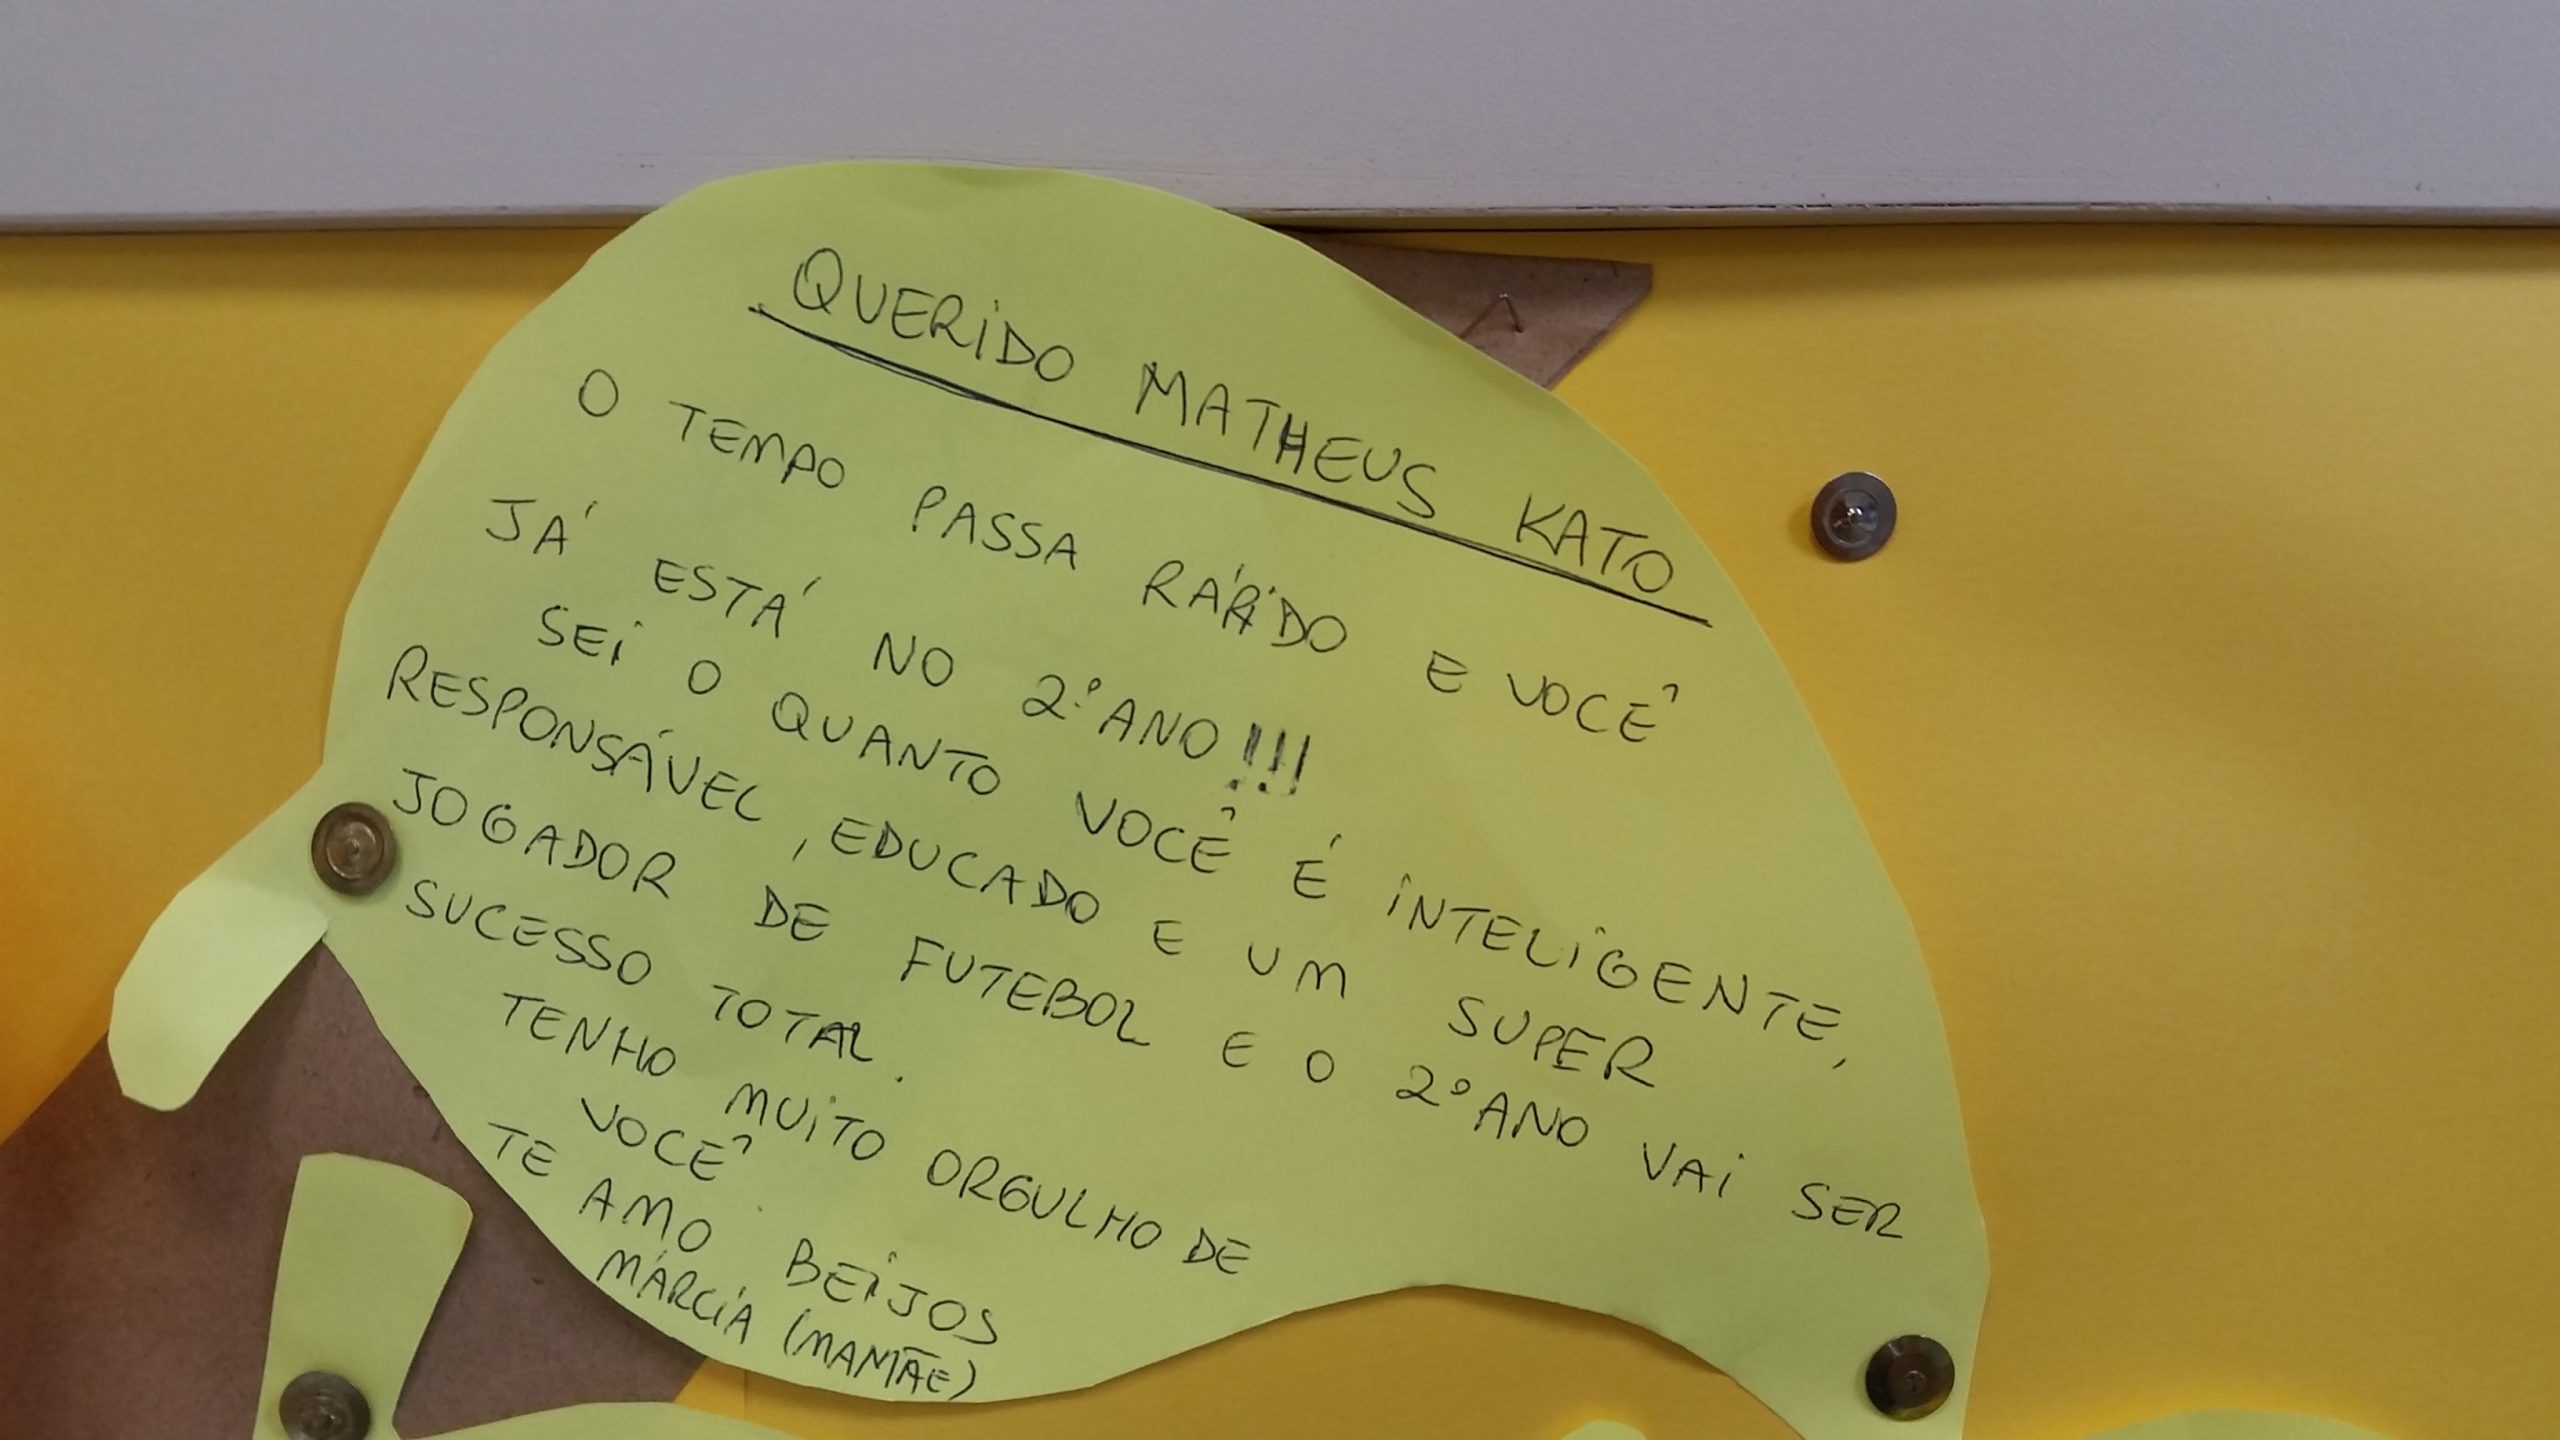 QUERIDO MATHEUS KATO
O TEMPO PASSA RÁPIDO E VOCÊ
JÁ ESTÁ NO 2º ANO!!!
SEI O QUANTO VOCÊ É INTELIGENTE,
RESPONSÁVEL, EDUCADO E UM SUPER
JOGADOR DE FUTEBOL E O 2º ANO VAI SER
SUCESSO TOTAL.
TENHO MUITO ORGULHO DE
VOCÊ.
TE AMO BEIJOS
MÁRCIA (MAMÃE)